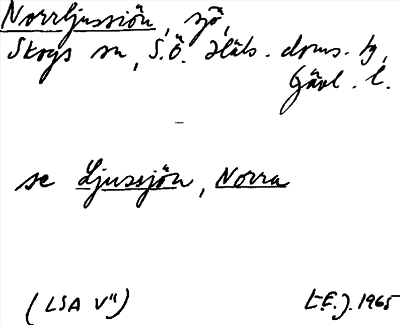 Norrljussjön, sjö,
Skogs sn, S.Ö. Häls. doms. tg,
Gävl. l.
se Ljussjön, Norra
(LSA V") L.E.J. 1965